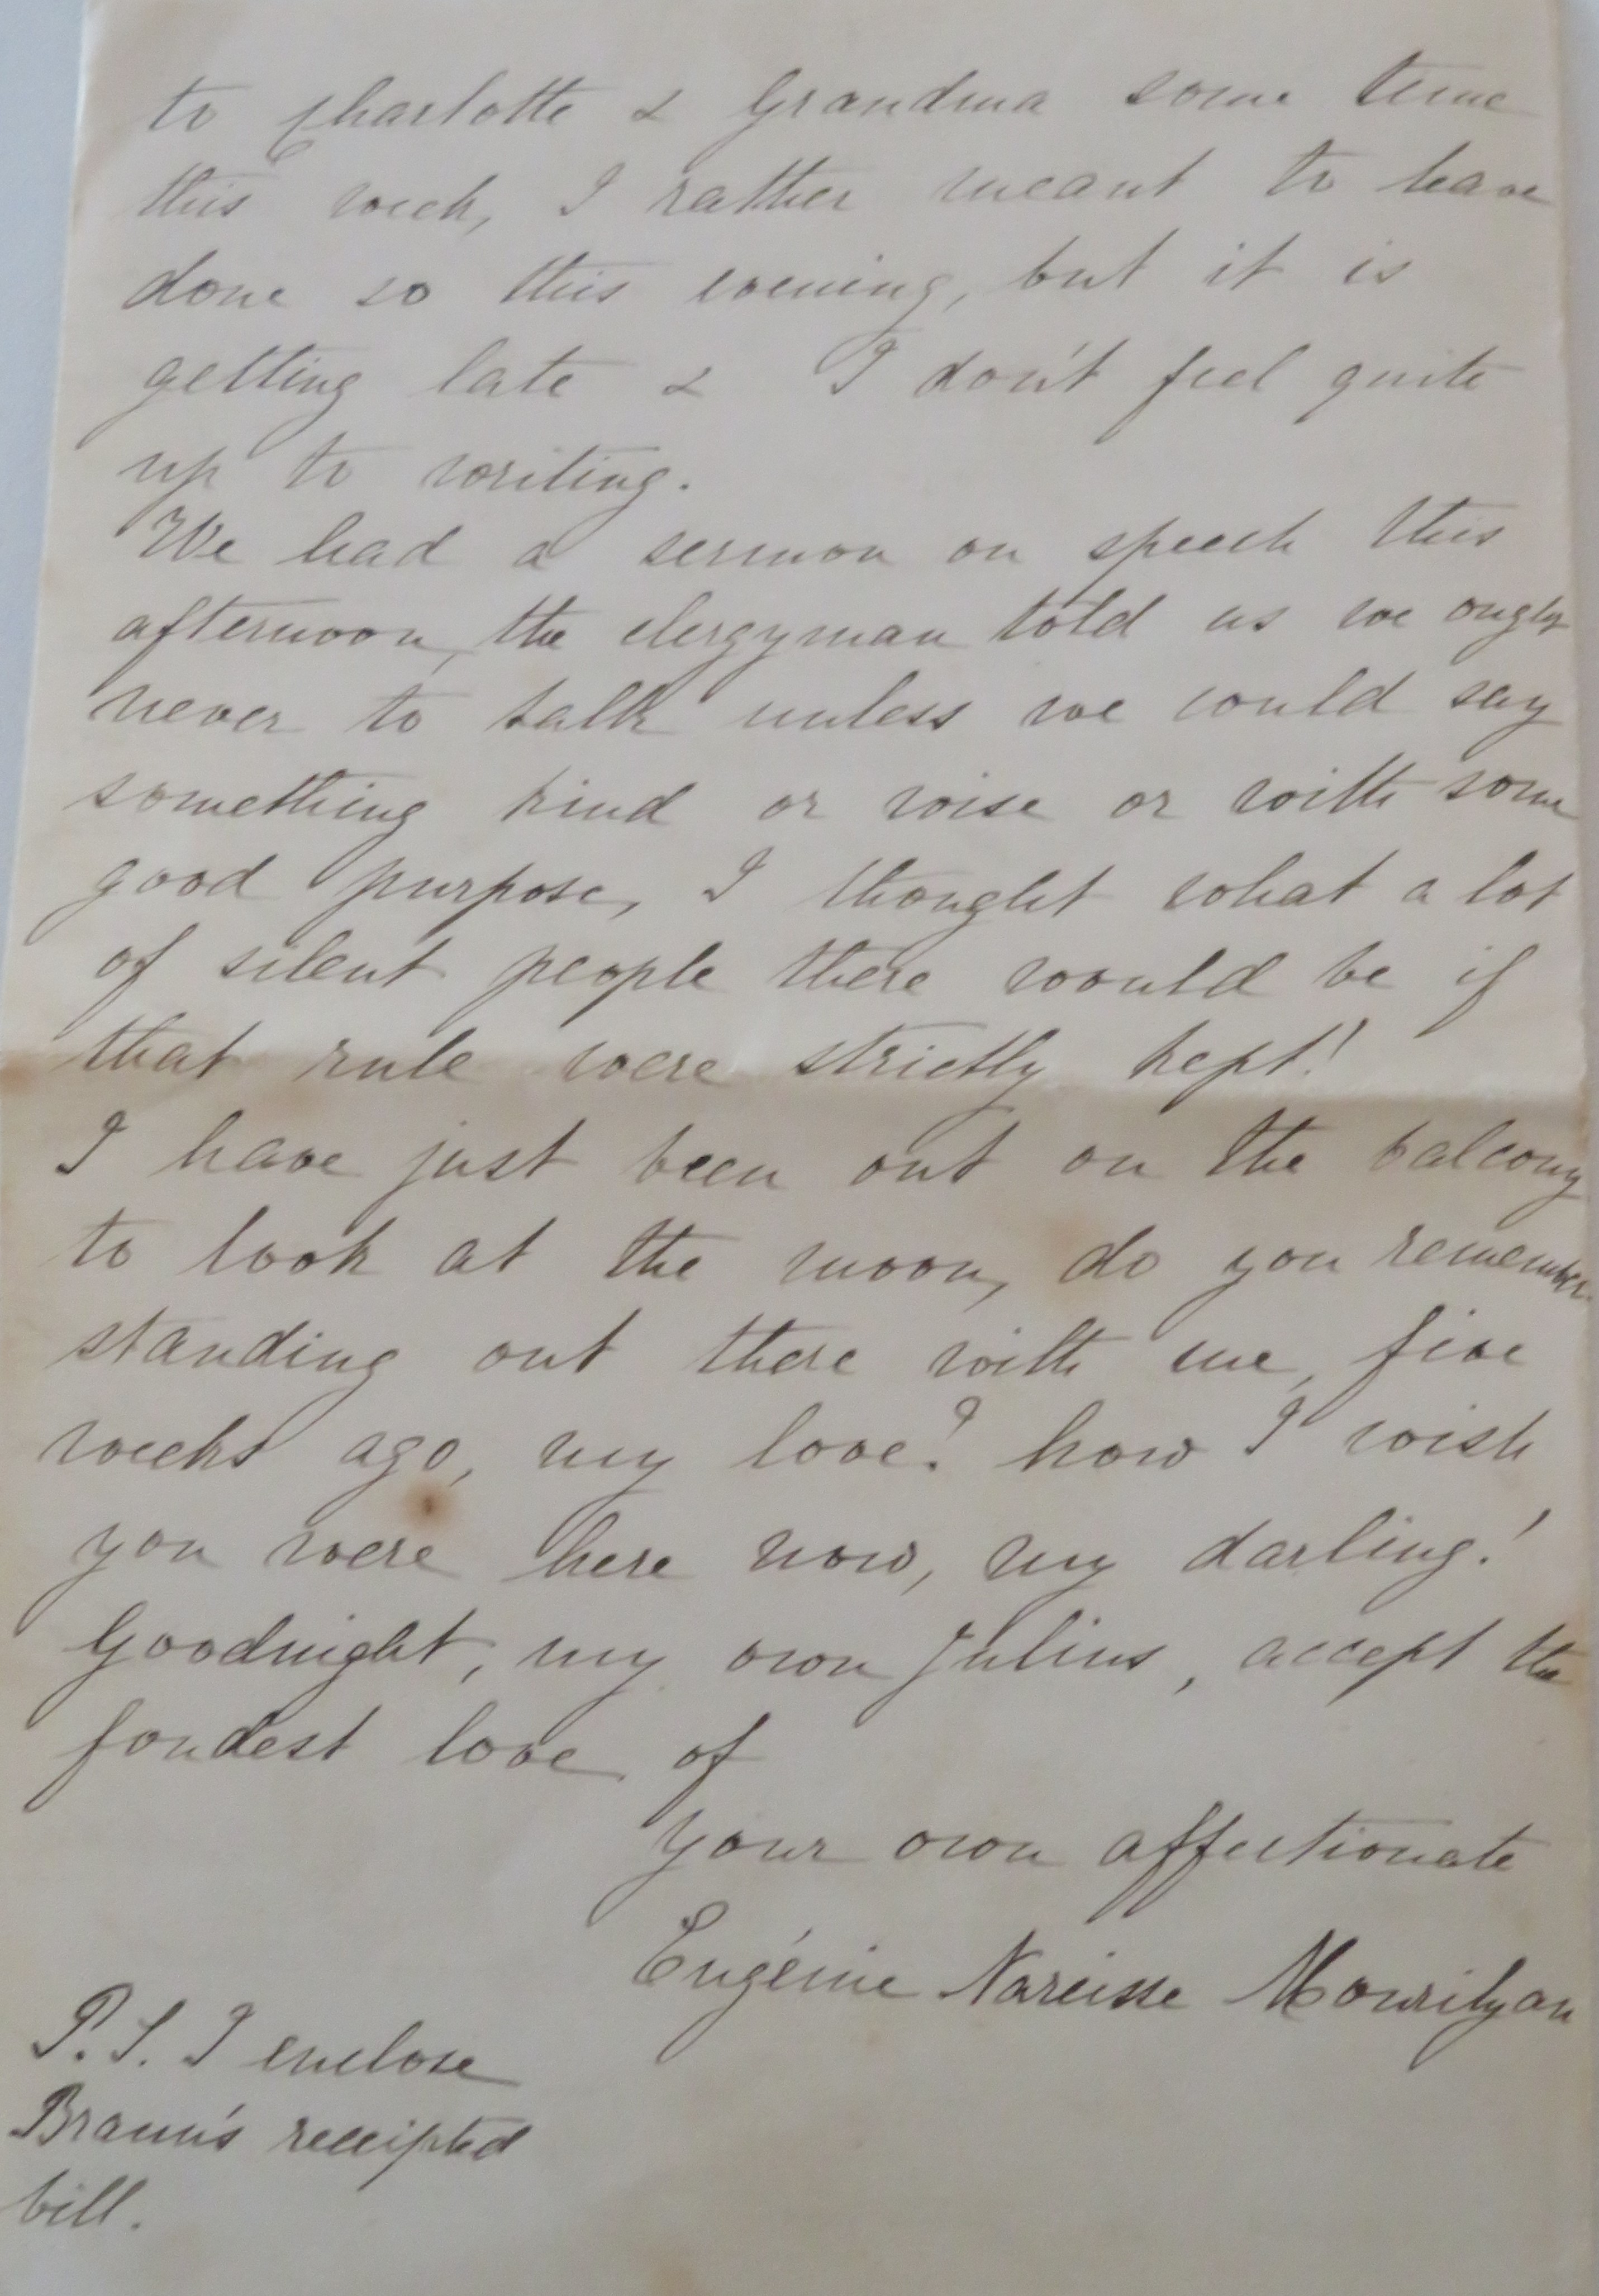 to Charlotte & Grandma some time
this week, I rather meant to have
done so this evening, but it is
getting late & I don't feel quite
up to writing.
We had a sermon on speech this
afternoon, the clergyman told us we ought
never to talk unless we could say
something kind or wise or with some
good purpose, I thought what a lot
of silent people there would be if
that rule were strictly kept!
I have just been out on the balcony
to look at the moon, do you remember
standing out there with me, five
weeks ago, my love? how I wish
you were here now, my darling!
Goodnight, my own Julius, accept the
fondest love of
your own affectionate
Eugénie Narcisse Mourilyan
P.S. I enclose
Braun's receipted
bill.